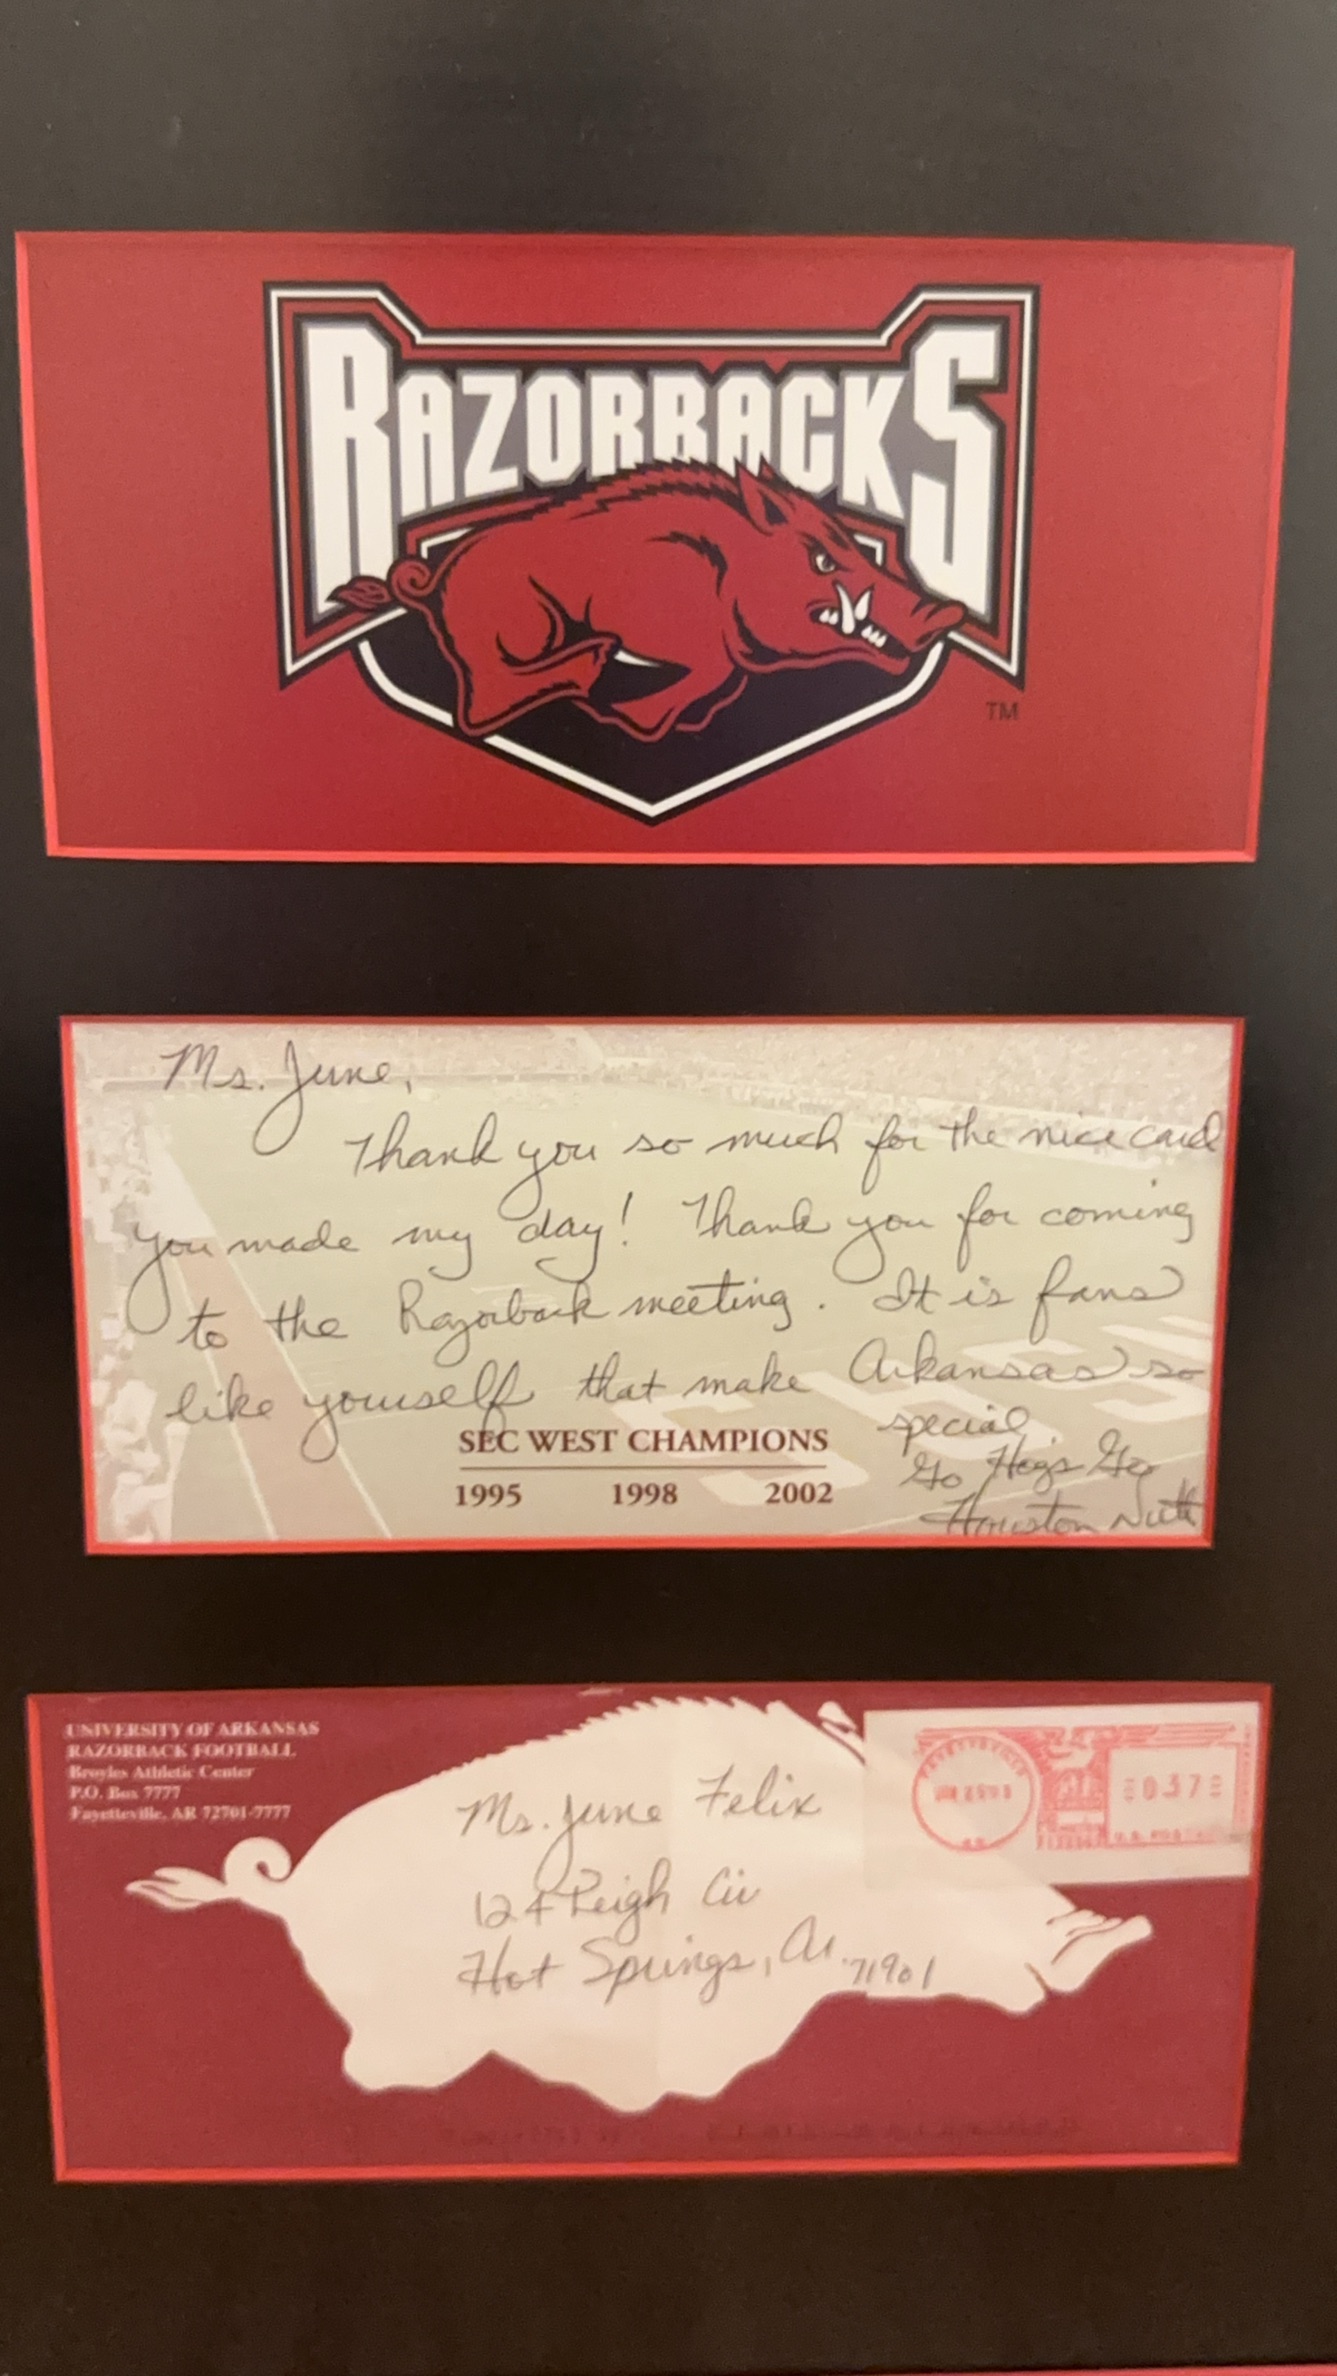 RAZORBACKS
TM
Ms. June,
Thank you so much for the nice card
you made my day! Thank you for coming
to the Razorback meeting. It is fans
like yourself that make Arkansas so
special.
Go Hogs Go
Houston Nutt
SEC WEST CHAMPIONS
1995 1998 2002
UNIVERSITY OF ARKANSAS
RAZORBACK FOOTBALL
Broyles Athletic Center
P.O. Box 7777
Fayetteville, AR 72701-7777
Ms. June Felix
124 Leigh Cir
Hot Springs, Ar. 71901
FAYETTEVILLE
AR
037
U.S. POSTAGE